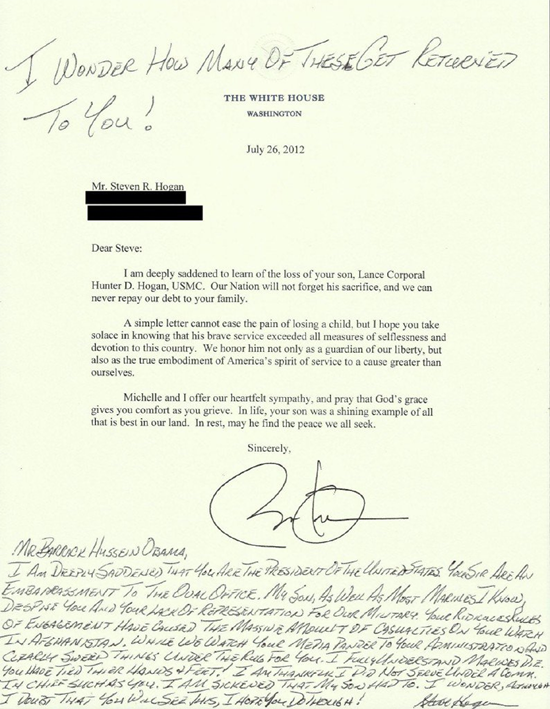 I WONDER HOW MANY OF THESE GET RETURNED
TO YOU!
THE WHITE HOUSE
WASHINGTON
July 26, 2012
Mr. Steven R. Hogan
Dear Steve:
I am deeply saddened to learn of the loss of your son, Lance Corporal
Hunter D. Hogan, USMC. Our Nation will not forget his sacrifice, and we can
never repay our debt to your family.
A simple letter cannot ease the pain of losing a child, but I hope you take
solace in knowing that his brave service exceeded all measures of selflessness and
devotion to this country. We honor him not only as a guardian of our liberty, but
also as the true embodiment of America's spirit of service to a cause greater than
ourselves.
Michelle and I offer our heartfelt sympathy, and pray that God's grace
gives you comfort as you grieve. In life, your son was a shining example of all
that is best in our land. In rest, may he find the peace we all seek.
Sincerely,
MR. BARRICK HUSSEIN OBAMA,
I AM DEEPLY SADDENED THAT YOU ARE THE PRESIDENT OF THE UNITED STATES. YOU SIR ARE AN
EMBARRASSMENT TO THE OVAL OFFICE. MY SON, AS WELL AS MOST MARINES I KNOW,
DESPISE YOU AND YOUR LACK OF REPRESENTATION FOR OUR MILITARY. YOUR RIDICULOUS RULES
OF ENGAGEMENT HAVE CAUSED THE MASSIVE AMOUNT OF CASUALTIES ON YOUR WATCH
IN AFGHANISTAN. WHILE WE WATCH YOUR MEDIA PANDER TO YOUR ADMINISTRATION AND
CLEARLY SWEEP THINGS UNDER THE RUG FOR YOU. I FULLY UNDERSTAND MARINES DIE.
YOU HAVE TIED THEIR HANDS & FEET! I AM THANKFUL I DID NOT SERVE UNDER A COMM.
IN CHIEF SUCH AS YOU. I AM SICKENED THAT MY SON HAD TO. I WONDER, ALTHOUGH
I DOUBT THAT YOU WILL SEE THIS, I HOPE YOU DO THOUGH! Steve Hogan